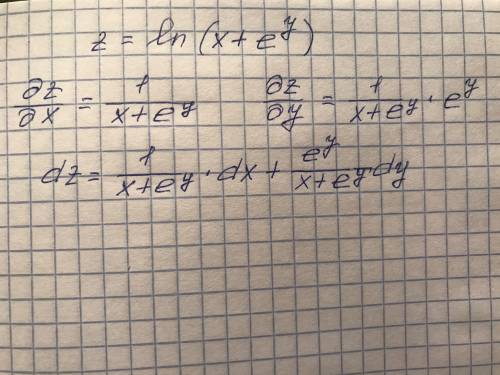 z = ln (x + e^y)
∂z/∂x = 1/(x + e^y) ∂z/∂y = 1/(x + e^y) · e^y
dz = 1/(x + e^y) · dx + e^y/(x + e^y) dy